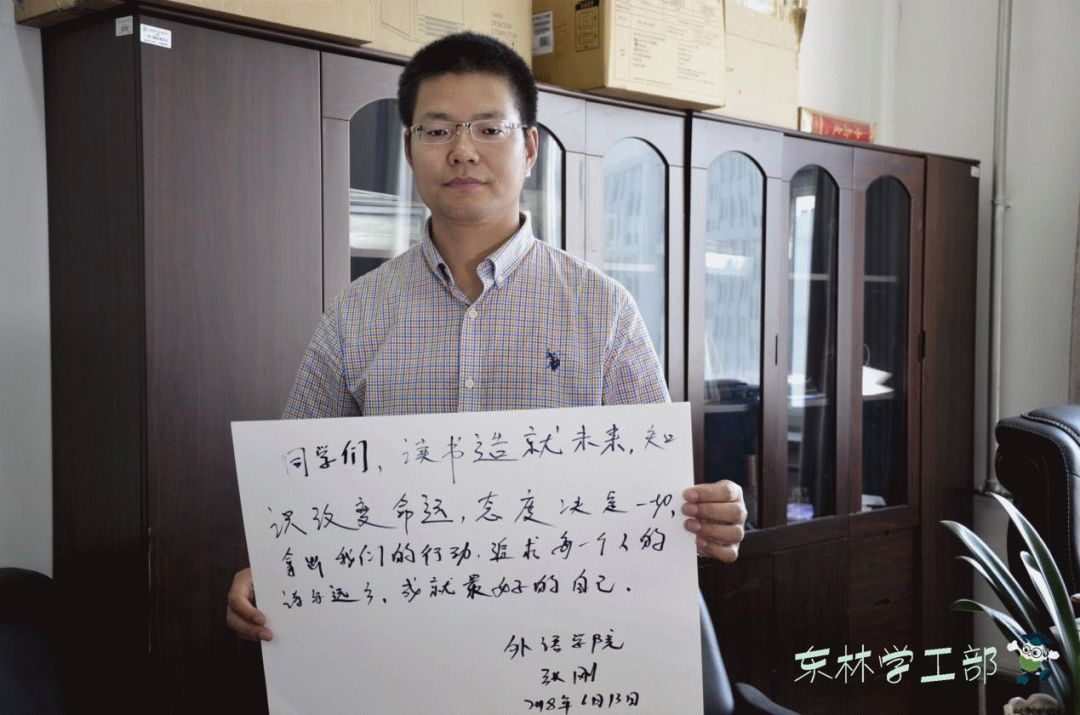 同学们，读书造就未来，知
识改变命运，态度决定一切，
拿出我们的行动，追求每一个人的
诗与远方，成就最好的自己。
外语学院
张刚
2018年6月13日
东林学工部